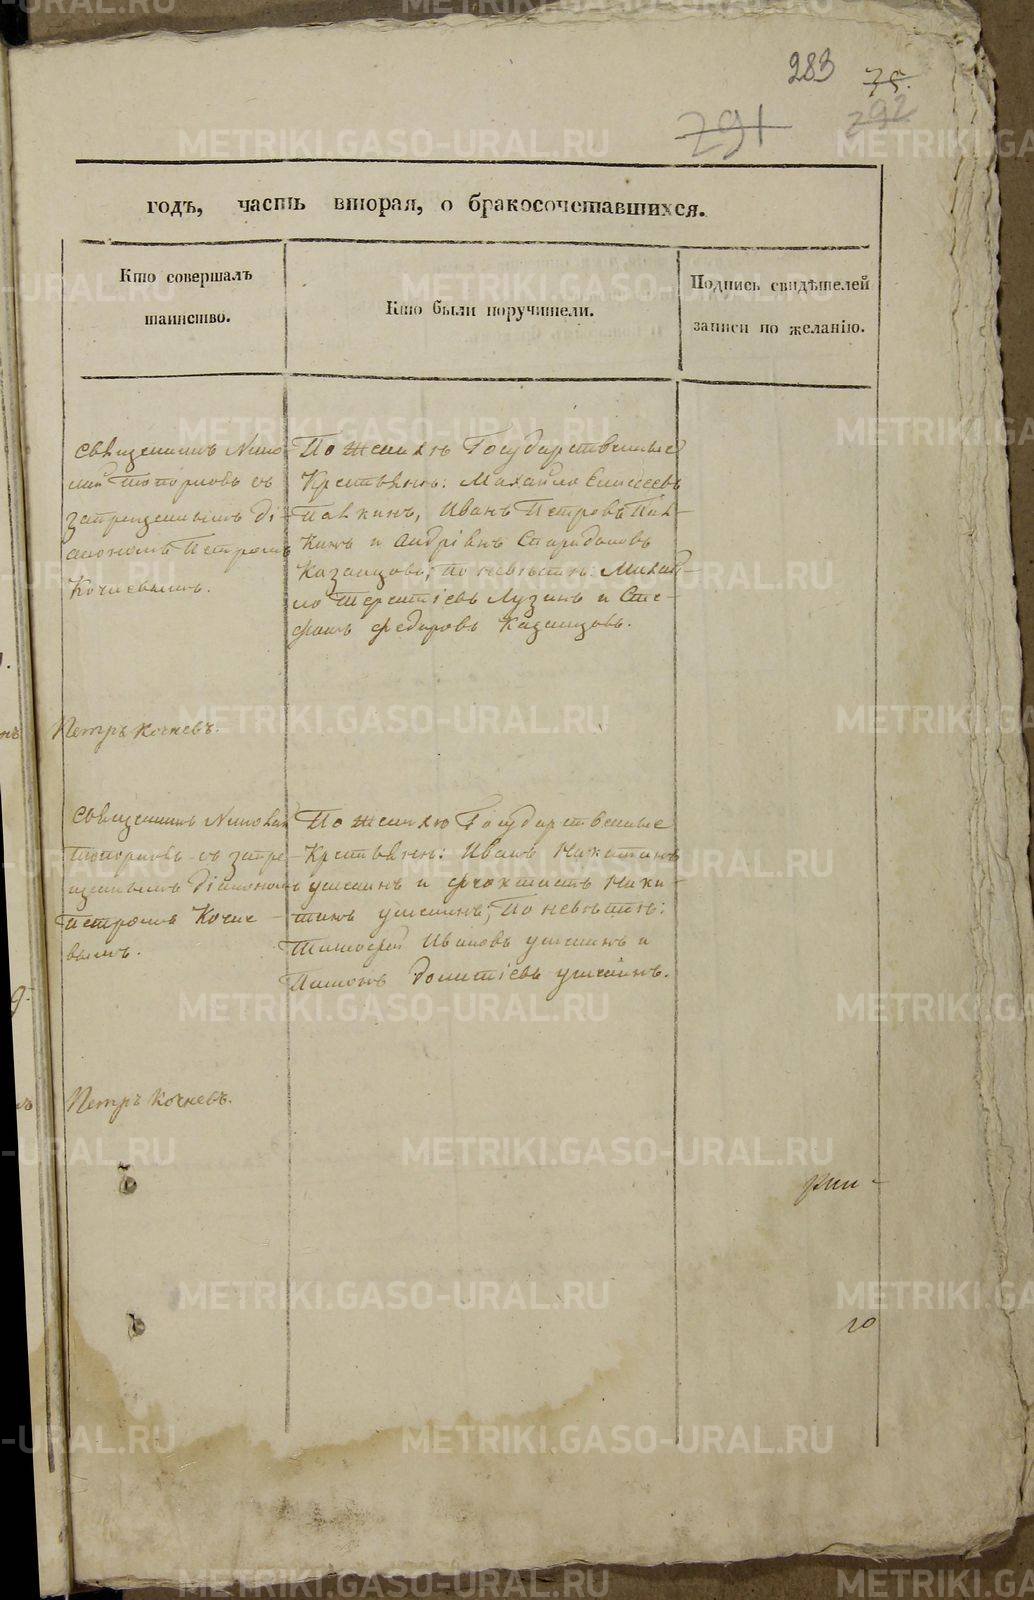 283 75.
291 292
годъ, часть вторая, о бракосочетавшихся.
Кто совершалъ
таинство.
Кто были поручители.
Подпись свидѣтелей
записи по желанію.
Священникъ Нико-
лай Топорковъ съ
запрещеннымъ Ді-
акономъ Петромъ
Кочневымъ.
По женихѣ Государственные
Крестьяне: Михайло Елисеевъ
Палкинъ, Иванъ Петровъ Пал-
кинъ и Андрїанъ Спиридоновъ
Казанцовъ; По невѣстѣ: Михай-
ло Терентіевъ Лузинъ и Сте-
фанъ Федоровъ Казанцовъ.
Петръ Кочневъ.
Священникъ Николай
Топорковъ съ запре-
щеннымъ Діакономъ
Петромъ Кочне-
вымъ.
По женихѣ Государственные
Крестьяне: Иванъ Никитинъ
и Феоктистъ Ники-
тинъ По невѣстѣ:
Тимофей Ивановъ и
Петръ Кочневъ.
METRIKI.GASO-URAL.RU